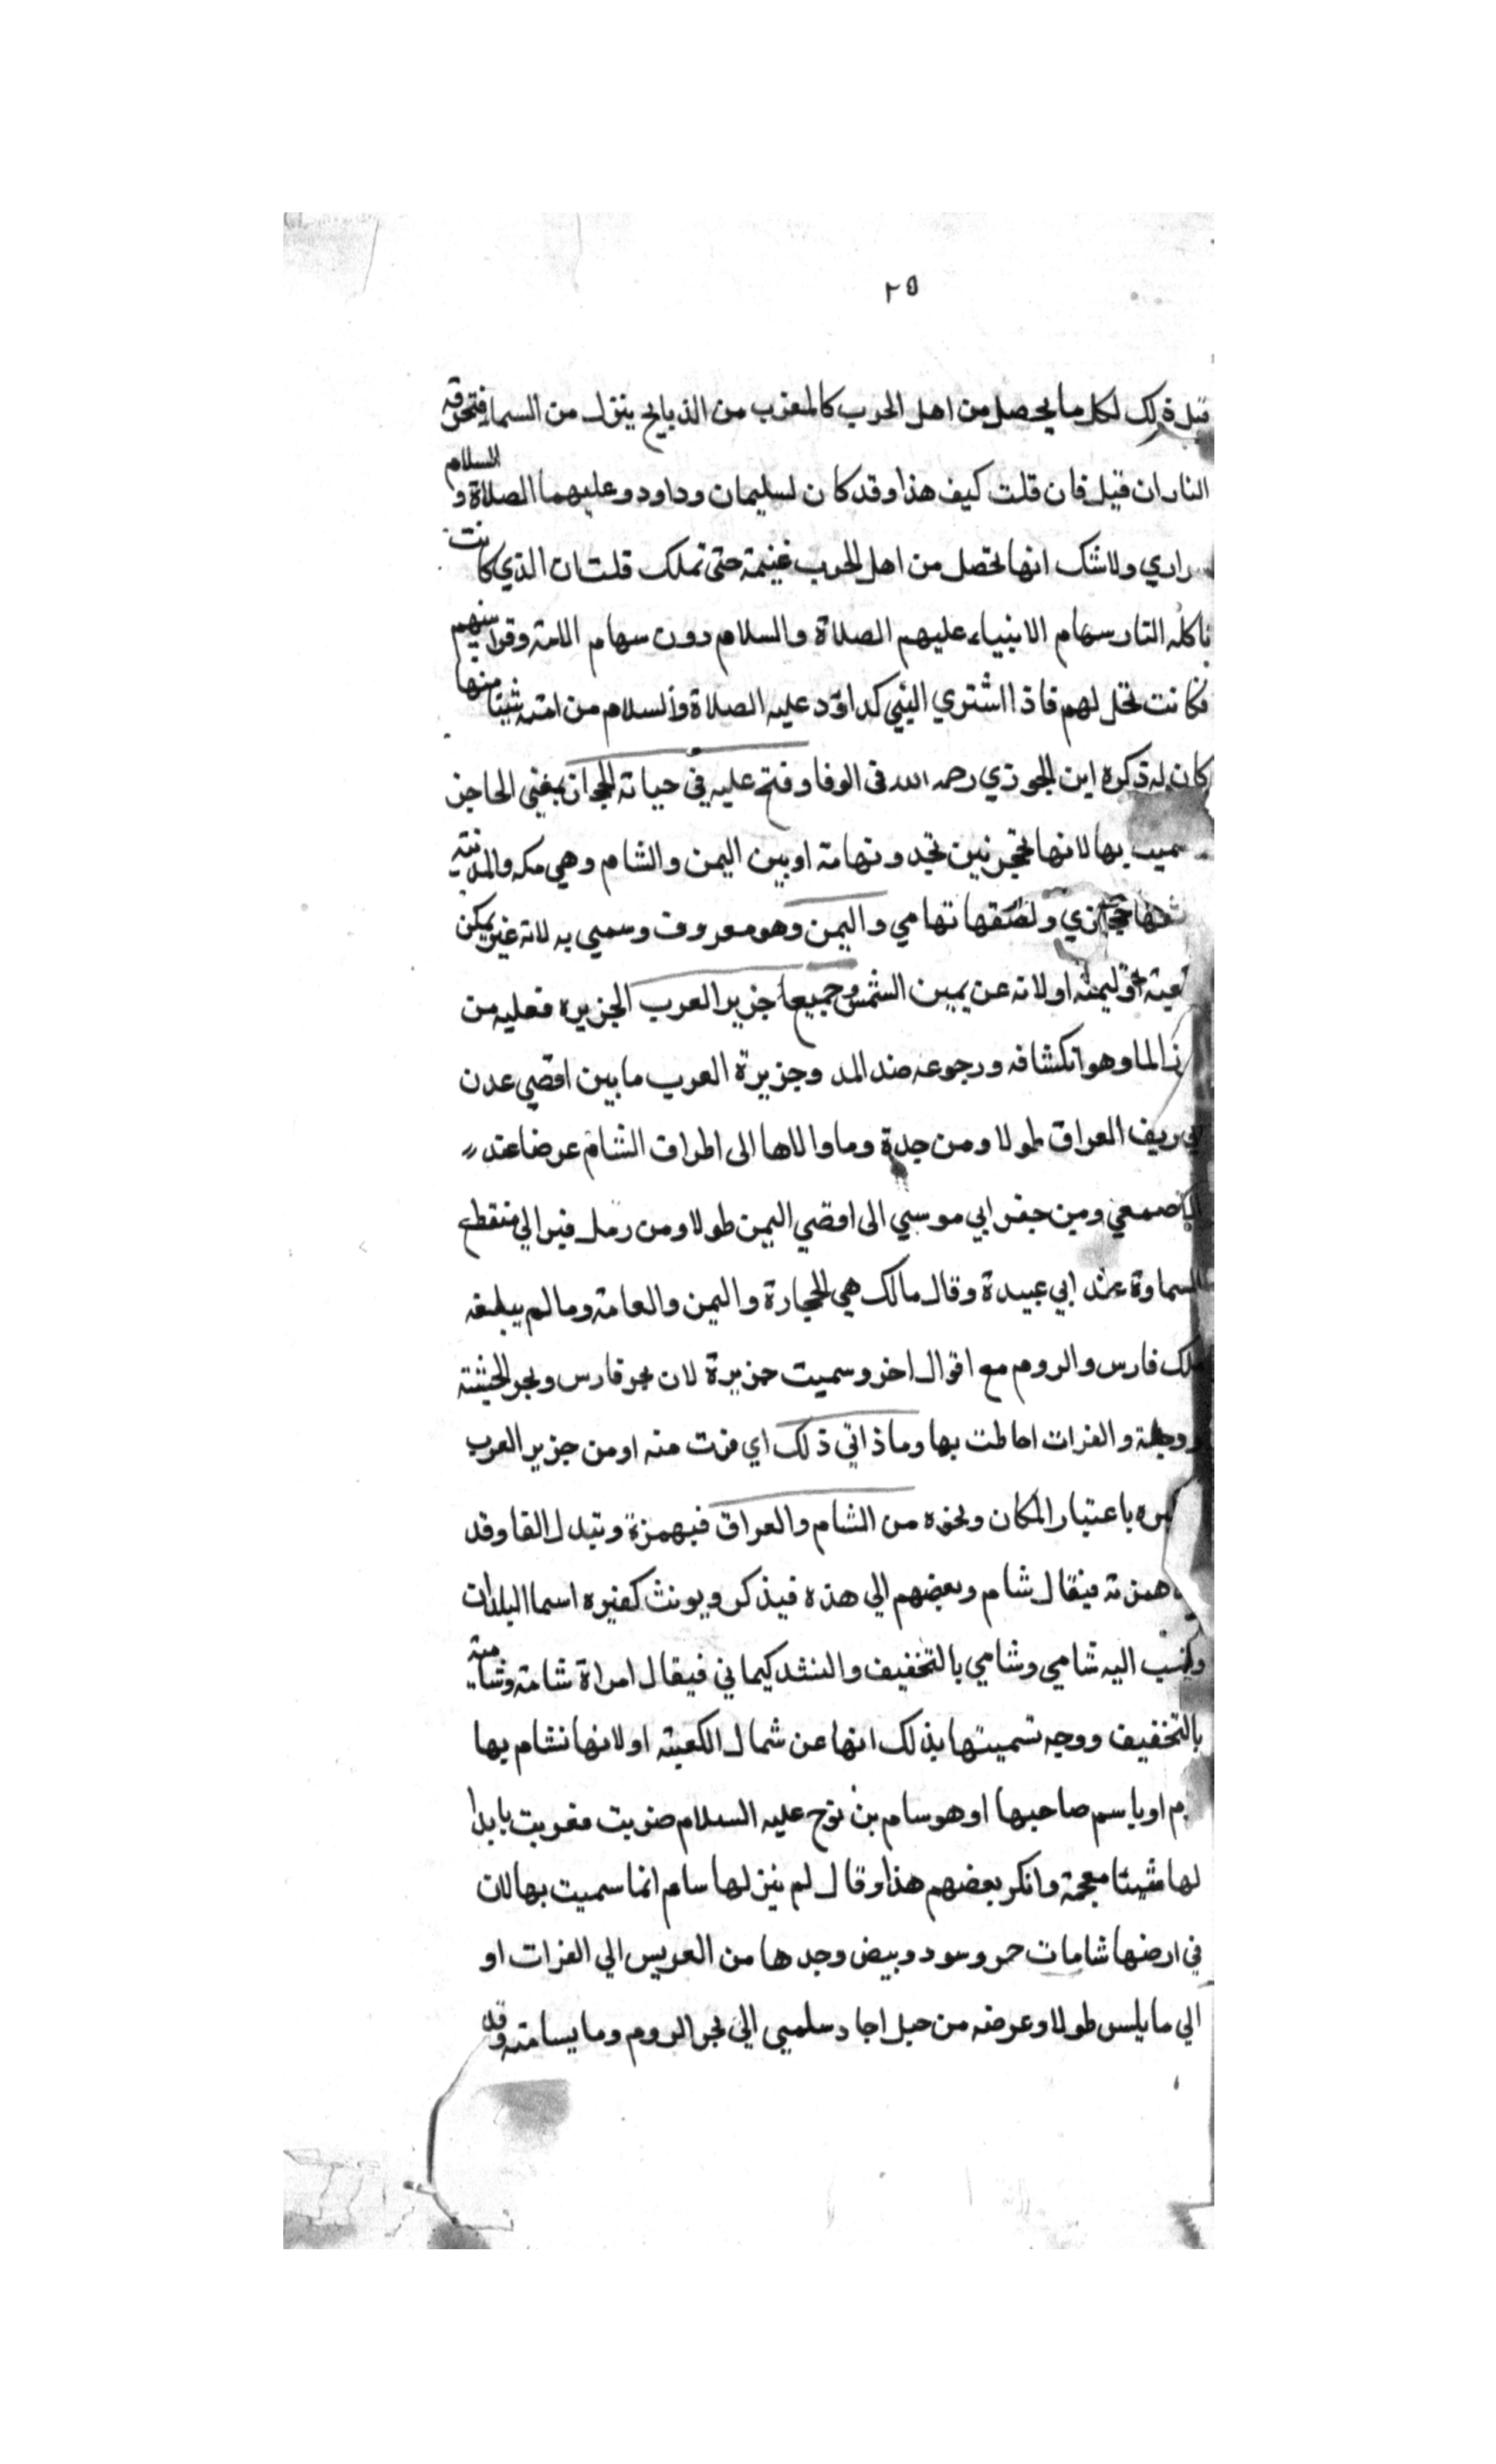 ٢٥
قبل ذلك لكل ما يحصل من اهل الحرب كالمعزب من الذبايح ينزل من السما فتحرقه
النار ان قبل فان قلت كيف هذا وقد كان لسليمان وداود وعليهما الصلاة والسلام
راري ولا شك انها تحصل من اهل الحرب غنيمة حتى تملك قلت ان الذي كانت
تاكله النار سهام الانبياء عليهم الصلاة والسلام دون سهام الامة
فكانت تحل لهم فاذا اشتري النبي كداود عليه الصلاة والسلام من امته شيئا منها
كان له ذكره ابن الجوزي رحمه الله في الوفا وفتح عليه في حياته الحجاز بمعني الحاجز
سميت بها لانها تحجز بين نجد وتهامة او بين اليمن والشام وهي مكه والمدينة
نصفها حجازي ونصفها تهامي واليمن وهو معروف وسمي به لانه عن يمين
الكعبة او ليمنه او لانه عن يمين الشمس وجميعا جزير العرب الجزيره فعليه من
الما وهو انكشافه ورجوعه ضد المد وجزيرة العرب ما بين اقصي عدن
الي ريف العراق طولا ومن جدة وما والاها الى اطراف الشام عرضا عند
الاصمعي ومن حفر ابي موسي الى اقصي اليمن طولا ومن رمل الي منقطع
السماوة عند ابي عبيدة وقال مالك هي الحجارة واليمن والعامة وما لم يبلغه
ملك فارس والروم مع اقوال اخر وسميت جزيرة لان بحر فارس وبحر الحبشة
ودجلة والفرات احاطت بها وما ذاني ذلك اي قرت منه او من جزير العرب
باعتبار المكان ونحوه من الشام والعراق فبهمزة وتبدل الفا وقد
همزته فيقال شام وبعضهم الي هذه فيذكر ويونث كغيره اسما البلدان
وينسب اليه شامي وشامي بالتخفيف والشد كيماني فيقال امراة شامة وشامية
بالتخفيف ووجه تسميتها بذلك انها عن شمال الكعبة او لانها نشام بها
او باسم صاحبها او هو سام بن نوح عليه السلام فعربت بابدا
لها شينا معجمة وانكر بعضهم هذا وقال لم ينزلها سام انما سميت بها لان
في ارضها شامات حمر وسود وبيض وحدها من العريس الي الفرات او
الي ما يلس طولا وعرضه من جبل اجا وسلمي الي بحر الروم وما يسامته وقد